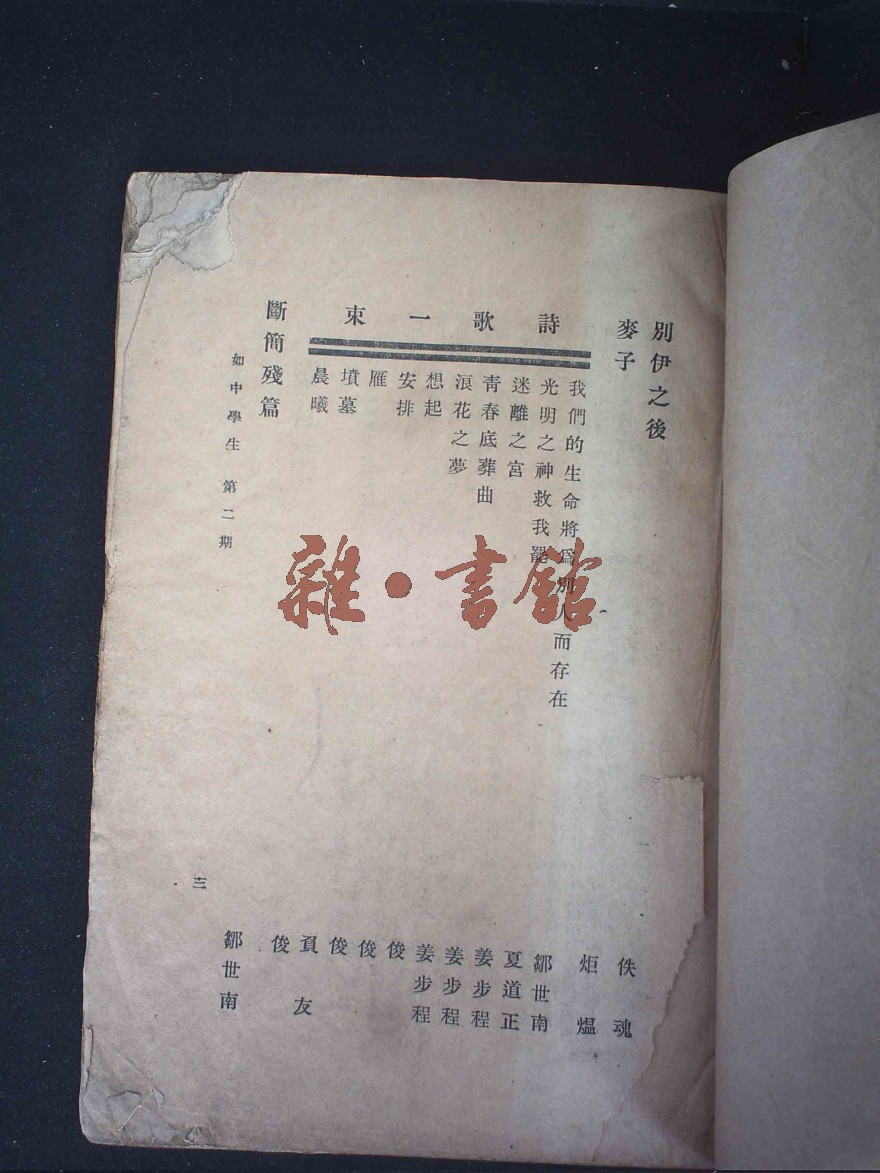 別伊之後 佚魂
麥子 炬煴
詩歌一束
我們的生命將爲別人而存在 鄒世南
光明之神救我罷 夏道正
迷離之宮 姜步程
靑春底葬曲 姜步程
浪花之夢 姜步程
想起 俊
安排 俊
雁 俊
墳墓 頁友
晨曦 俊
斷簡殘篇 鄒世南
如中學生 第二期
三
雜·書館